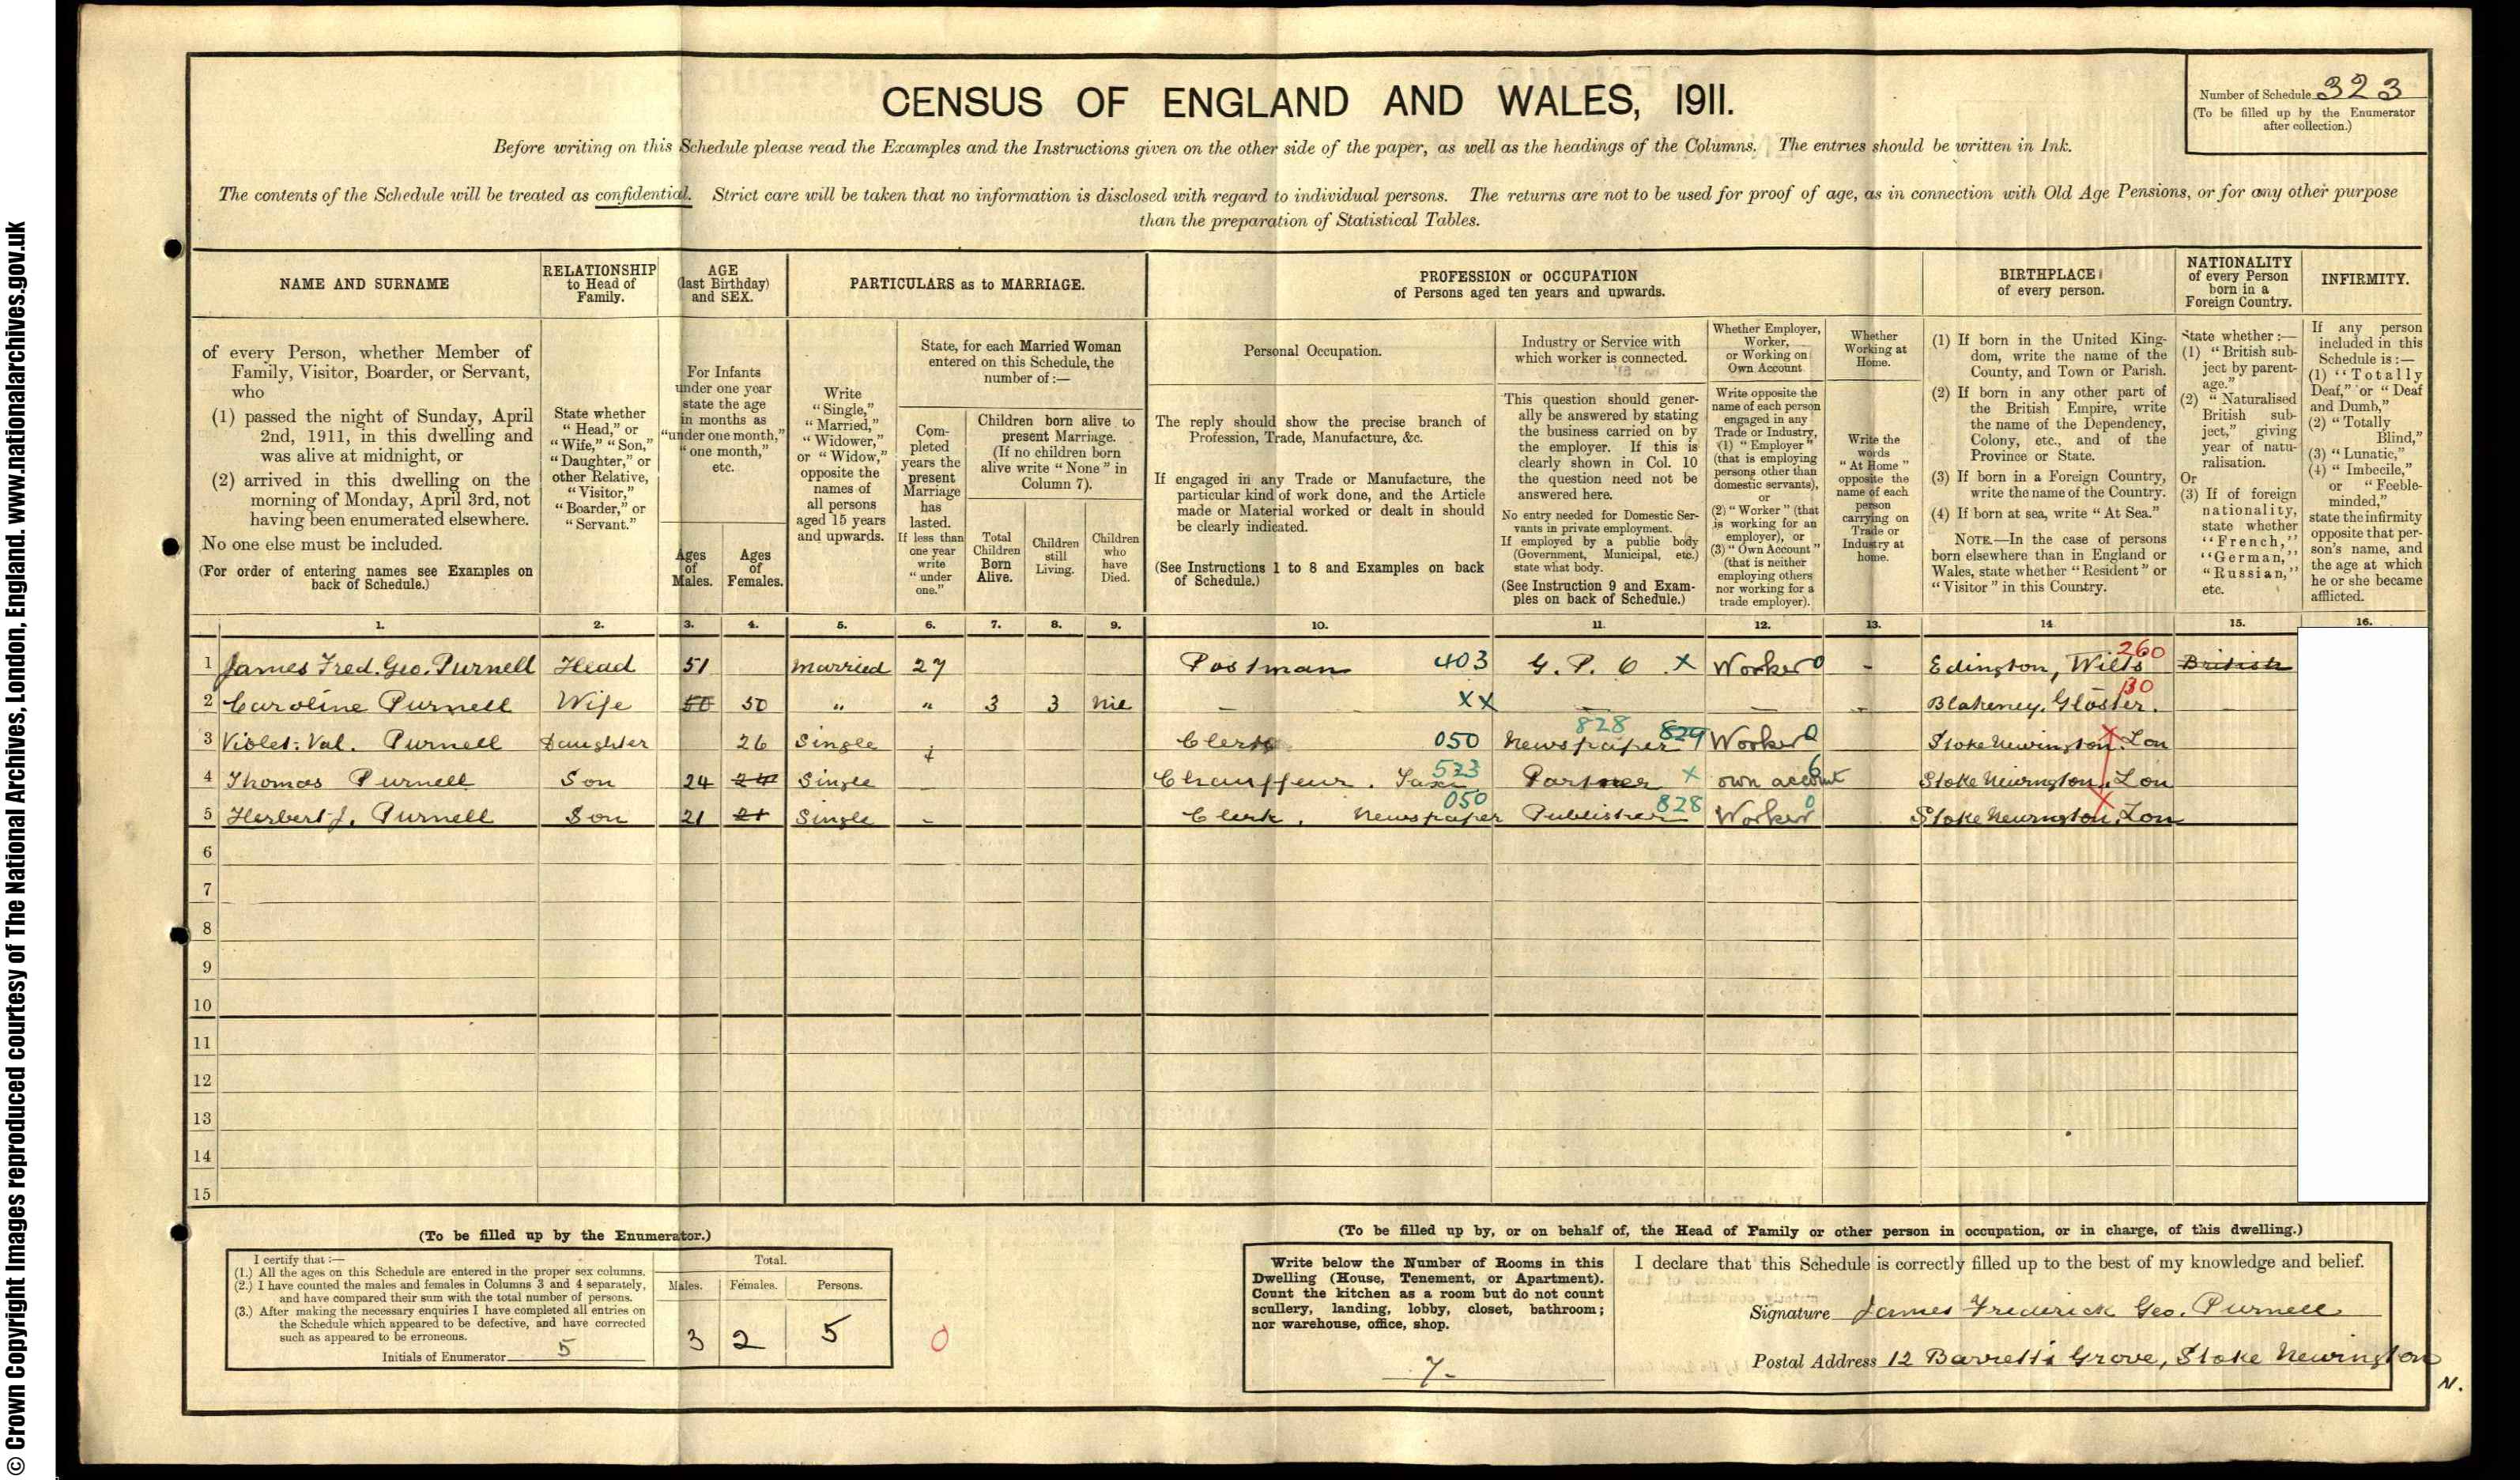 © Crown Copyright Images reproduced courtesy of The National Archives, London, England. www.nationalarchives.gov.uk
CENSUS OF ENGLAND AND WALES, 1911.
Number of Schedule 323
(To be filled up by the Enumerator
after collection.)
Before writing on this Schedule please read the Examples and the Instructions given on the other side of the paper, as well as the headings of the Columns. The entries should be written in Ink.
The contents of the Schedule will be treated as confidential. Strict care will be taken that no information is disclosed with regard to individual persons. The returns are not to be used for proof of age, as in connection with Old Age Pensions, or for any other purpose
than the preparation of Statistical Tables.
NAME AND SURNAME
of every Person, whether Member of
Family, Visitor, Boarder, or Servant,
who
(1) passed the night of Sunday, April
2nd, 1911, in this dwelling and
was alive at midnight, or
(2) arrived in this dwelling on the
morning of Monday, April 3rd, not
having been enumerated elsewhere.
No one else must be included.
(For order of entering names see Examples on
back of Schedule.)
RELATIONSHIP
to Head of
Family.
State whether
"Head," or
"Wife," "Son,"
"Daughter," or
other Relative,
"Visitor,"
"Boarder," or
"Servant."
AGE
(last Birthday)
and SEX.
For Infants
under one year
state the age
in months as
"under one month,"
"one month,"
etc.
Ages
of
Males.
Ages
of
Females.
PARTICULARS as to MARRIAGE.
Write
"Single,"
"Married,"
"Widower,"
or "Widow,"
opposite the
names of
all persons
aged 15 years
and upwards.
State, for each Married Woman
entered on this Schedule, the
number of :—
Com-
pleted
years the
present
Marriage
has
lasted.
If less than
one year
write
"under
one."
Children born alive to
present Marriage.
(If no children born
alive write "None" in
Column 7).
Total
Children
Born
Alive.
Children
still
Living.
Children
who
have
Died.
PROFESSION or OCCUPATION
of Persons aged ten years and upwards.
Personal Occupation.
The reply should show the precise branch of
Profession, Trade, Manufacture, &c.
If engaged in any Trade or Manufacture, the
particular kind of work done, and the Article
made or Material worked or dealt in should
be clearly indicated.
(See Instructions 1 to 8 and Examples on back
of Schedule.)
Industry or Service with
which worker is connected.
This question should gener-
ally be answered by stating
the business carried on by
the employer. If this is
clearly shown in Col. 10
the question need not be
answered here.
No entry needed for Domestic Ser-
vants in private employment.
If employed by a public body
(Government, Municipal, etc.)
state what body.
(See Instruction 9 and Exam-
ples on back of Schedule.)
Whether Employer,
Worker,
or Working on
Own Account
Write opposite the
name of each person
engaged in any
Trade or Industry,
(1) "Employer"
(that is employing
persons other than
domestic servants),
or
(2) "Worker" (that
is working for an
employer), or
(3) "Own Account"
(that is neither
employing others
nor working for a
trade employer).
Whether
Working at
Home.
Write the
words
"At Home"
opposite the
name of each
person
carrying on
Trade or
Industry at
home.
BIRTHPLACE
of every person.
(1) If born in the United King-
dom, write the name of the
County, and Town or Parish.
(2) If born in any other part of
the British Empire, write
the name of the Dependency,
Colony, etc., and of the
Province or State.
(3) If born in a Foreign Country,
write the name of the Country.
(4) If born at sea, write "At Sea."
NOTE.—In the case of persons
born elsewhere than in England or
Wales, state whether "Resident" or
"Visitor" in this Country.
NATIONALITY
of every Person
born in a
Foreign Country.
State whether :—
(1) "British sub-
ject by parent-
age."
(2) "Naturalised
British sub-
ject," giving
year of natu-
ralisation.
Or
(3) If of foreign
nationality,
state whether
"French,"
"German,"
"Russian,"
etc.
INFIRMITY.
If any person
included in this
Schedule is :—
(1) "Totally
Deaf," or "Deaf
and Dumb,"
(2) "Totally
Blind,"
(3) "Lunatic,"
(4) "Imbecile,"
or "Feeble-
minded,"
state the infirmity
opposite that per-
son's name, and
the age at which
he or she became
afflicted.
1. 2. 3. 4. 5. 6. 7. 8. 9. 10. 11. 12. 13. 14 15. 16.
1 James Fred. Geo. Purnell Head 51 Married 27 Postman 403 G. P. O X Worker 0 - Edington, Wilts 260 British
2 Caroline Purnell Wife 50 50 " " 3 3 Nil — XX — — — Blakeney, Gloster. 130
3 Violet. Val. Purnell Daughter 26 Single Clerk 050 Newspaper 828 829 Worker 0 Stoke Newington. Lon
4 Thomas Purnell Son 24 24 Single Chauffeur. Taxi 523 Partner X own account 6 Stoke Newington, Lon
5 Herbert J. Purnell Son 21 21 Single - Clerk, Newspaper 050 Publisher 828 Worker 0 Stoke Newington, Lon
6
7
8
9
10
11
12
13
14
15
(To be filled up by the Enumerator.)
I certify that :—
(1.) All the ages on this Schedule are entered in the proper sex columns.
(2.) I have counted the males and females in Columns 3 and 4 separately,
and have compared their sum with the total number of persons.
(3.) After making the necessary enquiries I have completed all entries on
the Schedule which appeared to be defective, and have corrected
such as appeared to be erroneous.
Initials of Enumerator
Total.
Males. Females. Persons.
3 2 5
0
(To be filled up by, or on behalf of, the Head of Family or other person in occupation, or in charge, of this dwelling.)
Write below the Number of Rooms in this
Dwelling (House, Tenement, or Apartment).
Count the kitchen as a room but do not count
scullery, landing, lobby, closet, bathroom;
nor warehouse, office, shop.
7-
I declare that this Schedule is correctly filled up to the best of my knowledge and belief.
Signature James Frederick Geo. Purnell
Postal Address 12 Barrett's Grove, Stoke Newington
N.